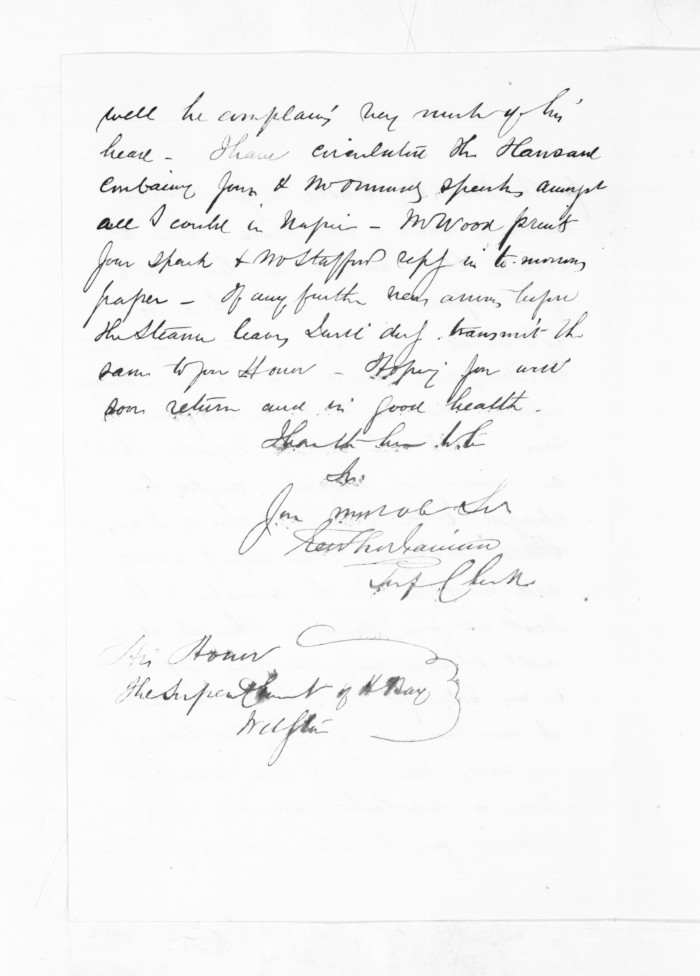 well he complains very much of his
head - I have circulated the Hansard
containing your & Mr Ormond's speeches amongst
all I could in Napier - Mr Wood prints
your speech & Mr Stafford's reply in to-morrows
paper - If any further news arrives before
the Steamer leaves I will duly transmit the
same to your Honor - Hoping you will
soon return and in good health -
I have the honor to be
Sir
Your most ob Svt
Supt Clerk
His Honor
The Superintendent of H Bay
Wellington